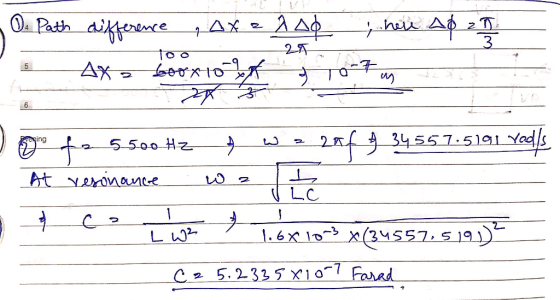 ① Path difference, Δx = λ Δφ / 2π ; here Δφ = π/3
Δx = 600 100 × 10⁻⁹ × π / 2π × 3 ⇒ 10⁻⁷ m
5
6
② f = 5500 Hz ⇒ ω = 2πf ⇒ 34557.5191 rad/s
At resonance ω = √(1/LC)
⇒ C = 1 / L ω² ⇒ 1 / 1.6 × 10⁻³ × (34557.5191)²
C = 5.2335 × 10⁻⁷ Farad.